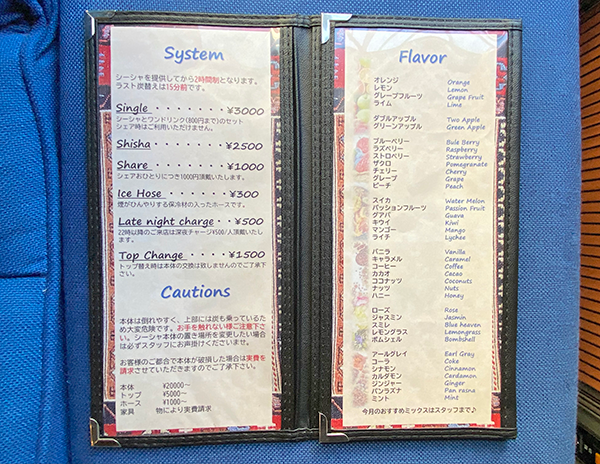 System
シーシャを提供してから2時間制となります。
ラスト炭替えは15分前です。
Single ・・・・・・・・¥3000
シーシャとワンドリンク(800円まで)のセット
シェア時はご利用いただけません。
Shisha ・・・・・・・¥2500
Share ・・・・・・・¥1000
シェアおひとりにつき1000円頂戴いたします。
Ice Hose ・・・・・¥300
煙がひんやりする保冷材の入ったホースです。
Late night charge・・¥500
22時以降のご来店は深夜チャージ¥500/人頂戴いたします。
Top Change ・・・・¥1500
トップ替え時は本体の交換は致しませんのでご了承下さい。
Cautions
本体は倒れやすく、上部には炭も乗っているため
大変危険です。お手を触れない様ご注意下さい。
シーシャ本体の置き場所を変更したい場合
は必ずスタッフにお声掛けくださいませ。
お客様のご都合で本体が破損した場合は実費を
請求させていただきますのでご了承下さい。
本体 ¥20000〜
トップ ¥5000〜
ホース ¥1000〜
家具 物により実費請求
Flavor
オレンジ Orange
レモン Lemon
グレープフルーツ Grape Fruit
ライム Lime
ダブルアップル Two Apple
グリーンアップル Green Apple
ブルーベリー Bule Berry
ラズベリー Raspberry
ストロベリー Strawberry
ザクロ Pomegranate
チェリー Cherry
グレープ Grape
ピーチ Peach
スイカ Water Melon
パッションフルーツ Passion Fruit
グアバ Guava
キウイ Kiwi
マンゴー Mango
ライチ Lychee
バニラ Vanilla
キャラメル Caramel
コーヒー Coffee
カカオ Cacao
ココナッツ Coconuts
ナッツ Nuts
ハニー Honey
ローズ Rose
ジャスミン Jasmin
スミレ Blue heaven
レモングラス Lemongrass
ボムシェル Bombshell
アールグレイ Earl Gray
コーラ Coke
シナモン Cinnamon
カルダモン Cardamon
ジンジャー Ginger
パンラズナ Pan rasna
ミント Mint
今月のおすすめミックスはスタッフまで♪